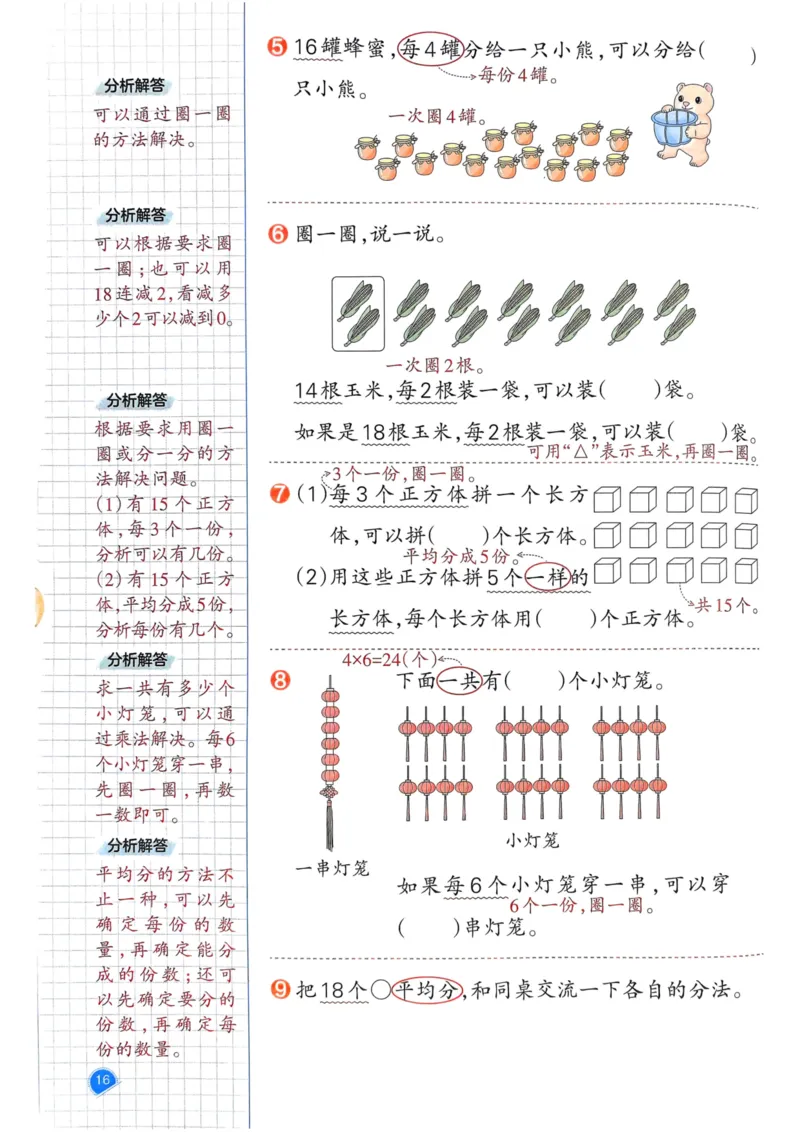 分析解答
可以通过圈一圈
的方法解决。
分析解答
可以根据要求圈
一圈;也可以用
18连减2,看减多
少个2可以减到0。
分析解答
根据要求用圈一
圈或分一分的方
法解决问题。
(1)有15个正方
体,每3个一份,
分析可以有几份。
(2)有15个正方
体,平均分成5份,
分析每份有几个。
分析解答
求一共有多少个
小灯笼,可以通
过乘法解决。每6
个小灯笼穿一串,
先圈一圈,再数
一数即可。
分析解答
平均分的方法不
止一种,可以先
确定每份的数
量,再确定能分
成的份数;还可
以先确定要分的
份数,再确定每
份的数量。
16
5 16罐蜂蜜,每4罐分给一只小熊,可以分给( )
每份4罐。
只小熊。
一次圈4罐。
6 圈一圈,说一说。
一次圈2根。
14根玉米,每2根装一袋,可以装( )袋。
如果是18根玉米,每2根装一袋,可以装( )袋。
可用“△”表示玉米,再圈一圈。
3个一份,圈一圈。
7 (1)每3个正方体拼一个长方
体,可以拼( )个长方体。
平均分成5份。
(2)用这些正方体拼5个一样的
共15个。
长方体,每个长方体用( )个正方体。
4×6=24(个)
8 下面一共有( )个小灯笼。
小灯笼
一串灯笼
如果每6个小灯笼穿一串,可以穿
6个一份,圈一圈。
( )串灯笼。
9 把18个○平均分,和同桌交流一下各自的分法。